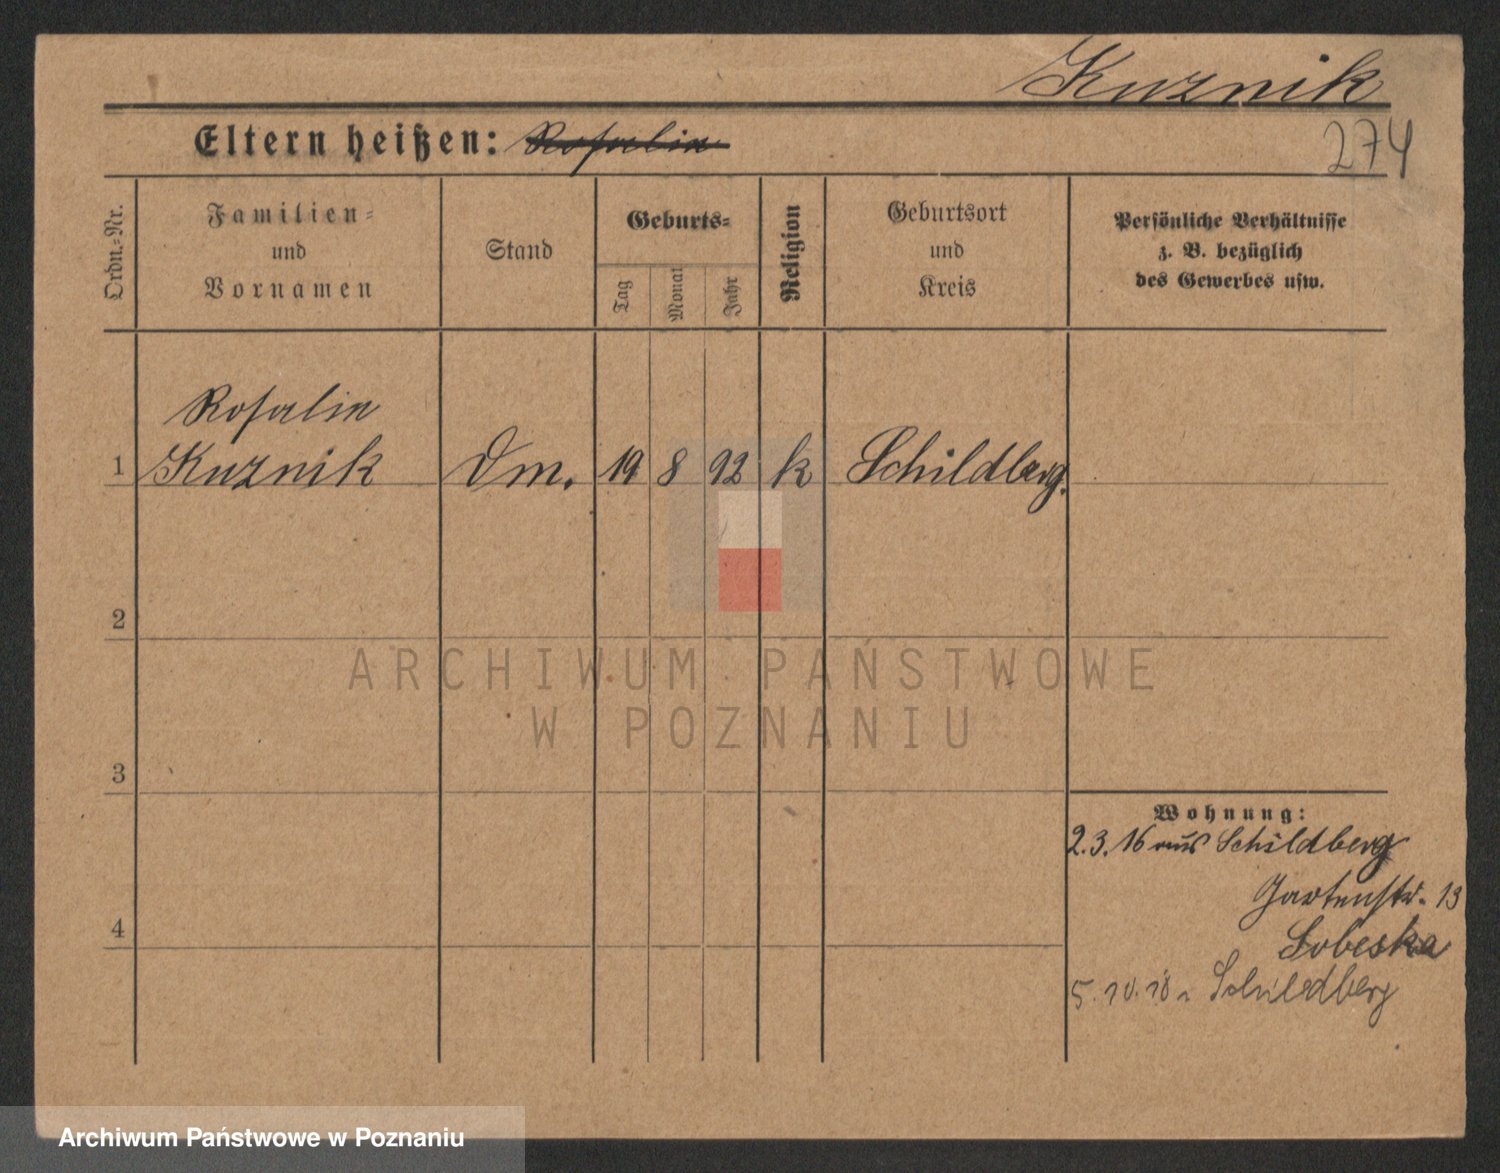 Kuznik
274
Eltern heißen: Rosalie
Ordn.=Nr.
Familien=
und
Vornamen
Stand
Geburts=
Tag
Monat
Jahr
Religion
Geburtsort
und
Kreis
Persönliche Verhältnisse
z. B. bezüglich
des Gewerbes usw.
Rosalie
1 Kuznik Dm. 19 8 92 k Schildberg.
2
3
4
Wohnung:
2.3.16 aus Schildberg
Gartenstr. 13
Sobeska
5.10.18 n Schildberg
ARCHIWUM PAŃSTWOWE
W POZNANIU
Archiwum Państwowe w Poznaniu